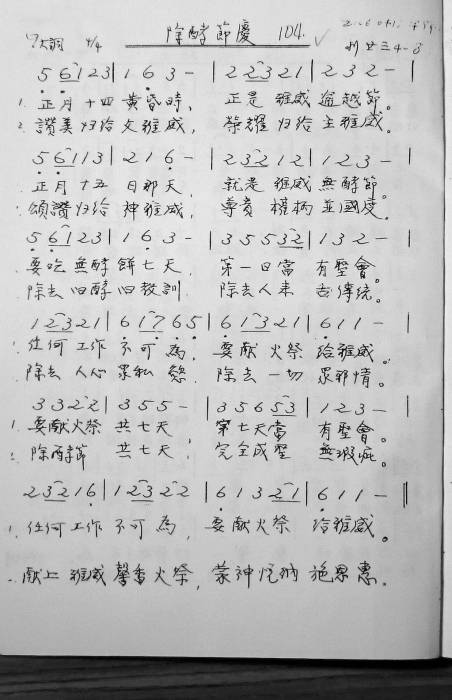 除酵節慶 104.
4/4 利廿三4-8
5 6123 | 1 6 3 - | 2 2321 | 2 3 2 - |
1. 正月十四黃昏時, 正是雅威逾越節。
2. 讚美归给父雅威, 榮耀归给主雅威。
5 6113 | 2 1 6 - | 2 3212 | 1 2 3 - |
正月十五日那天, 就是雅威無酵節。
頌讚归给神雅威, 尊貴權柄並國度。
5 6123 | 1 6 3 - | 3 5532 | 1 3 2 - |
要吃無酵餅七天, 第一日當有聖會。
除去旧酵旧教訓, 除去人來古傳統。
12321 | 61765 | 61321 | 611 - |
1. 任何工作不可為, 要献火祭给雅威。
除去人心眾私慾, 除去一切眾邪情。
3322 | 355 - | 35653 | 123 - |
1. 要献火祭共七天, 第七天當有聖會。
2. 除酵節共七天, 完全成聖無瑕疵。
23216 | 12322 | 61321 | 611 - ‖
1. 任何工作不可為, 要献火祭给雅威。
献上雅威馨香火祭, 蒙神悅纳施恩惠。